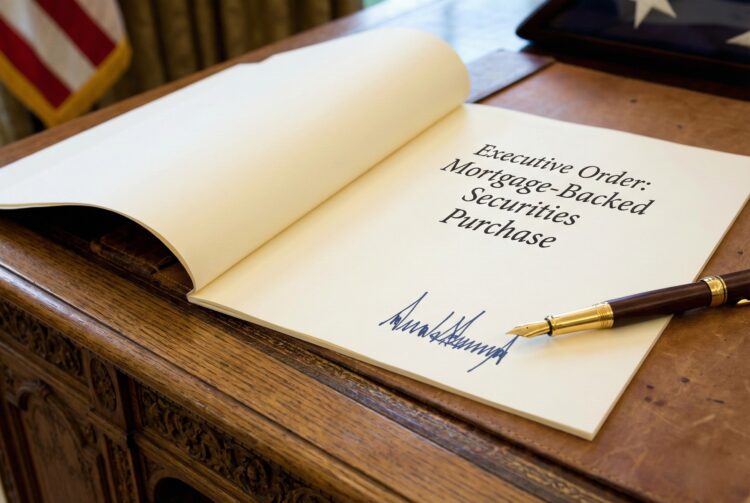 Executive Order:
Mortgage-Backed
Securities
Purchase